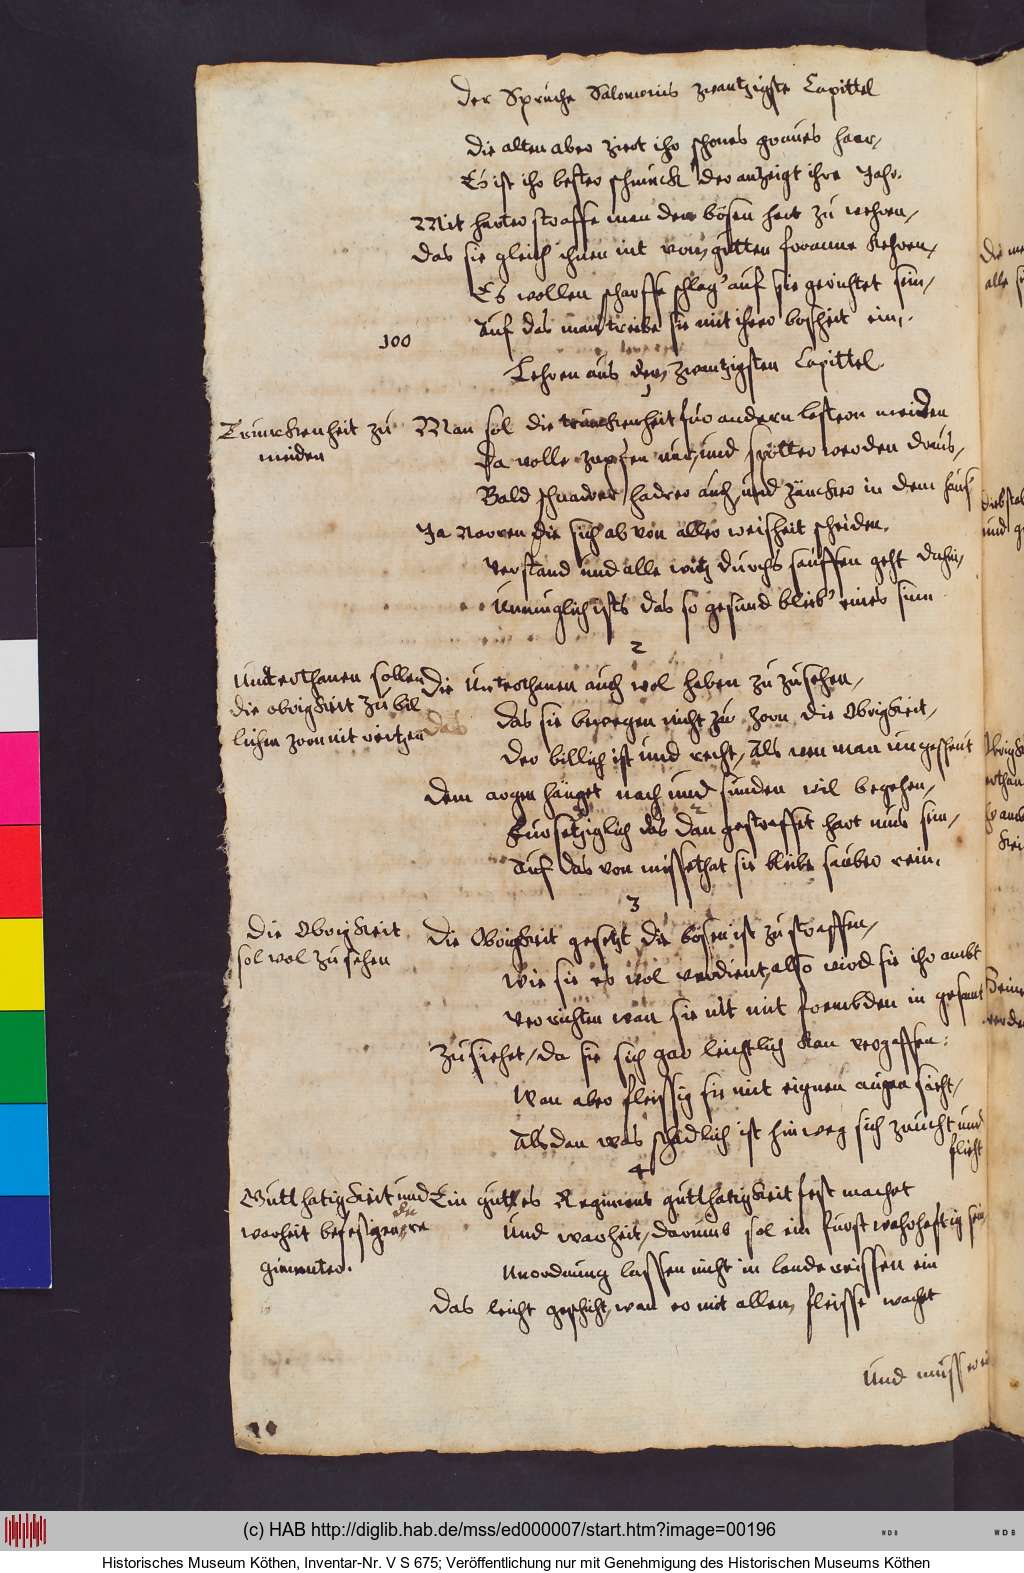 Der Spruche Salomonis zwantzigste Capittel
Die alten aber ziert ihr schones graues haar,
Es ist ihr bester schmuck der anzeigt ihre Jahr.
Mit harter straffe man den bösen hat zu wehren,
das sie gleich ihnen nit von gutten
Es wollen scharffe schleg auf sie gerichtet sein,
100 Auf das man treibe sie mit ihrer bosheit ein.
Lehren aus dem zwantzigsten Capittel.
1
Trunckenheit zu
meiden
Man sol die trunckenheit fur andern lastern meiden
Da volle zapfen nur, und spötter werden draus,
Bald schnader hadrer auch, und zäncker in dem haus
Ja Narren die sich ab von aller weisheit scheiden.
Verstand und alle witz durchs sauffen geht dahin,
Unmuglich ists das so gesund bleib' eines sinn
2
Untterthanen sollen
die obrigkeit zu bil
lichem zorn nit reitzen
Die Untterthanen auch wol haben zu zusehen,
das sie bewegen nicht zur zorn die Obrigkeit,
der billich ist und recht, Als wen man ungescheut
dem argen hänget nach und sunden wil begehen,
fursetziglich das dan gestraffet hart mus sein,
Auf das von missethat sie bleibe sauber rein.
3
Die Obrigkeit
sol wol zusehen
Die Obrigkeit gesetzt die bösen ist zu straffen,
Wie sie es wol verdient, also wird sie ihr ambt
Verrichten wan sie nit mit frembden in gesamt
Zusiehet, da sie sich gar leichtlich kan vergaffen:
Wan aber fleissig sie mit eignen augen sieht,
Als dan was schedlich ist hinweg sich zeucht und
flieht
4
Gutthatigkeit und
warheit befestigen die re
gimenter.
Ein guttes Regiment gutthatigkeit fest machet
Und warheit, darumb sol ein furst wahrhaftig sein,
Unordnung lassen nicht in lande reissen ein
Das leicht geschicht, wan er nit allem fleisse wachet
Und muss
(c) HAB http://diglib.hab.de/mss/ed000007/start.htm?image=00196
WDB
WDB
Historisches Museum Köthen, Inventar-Nr. V S 675; Veröffentlichung nur mit Genehmigung des Historischen Museums Köthen